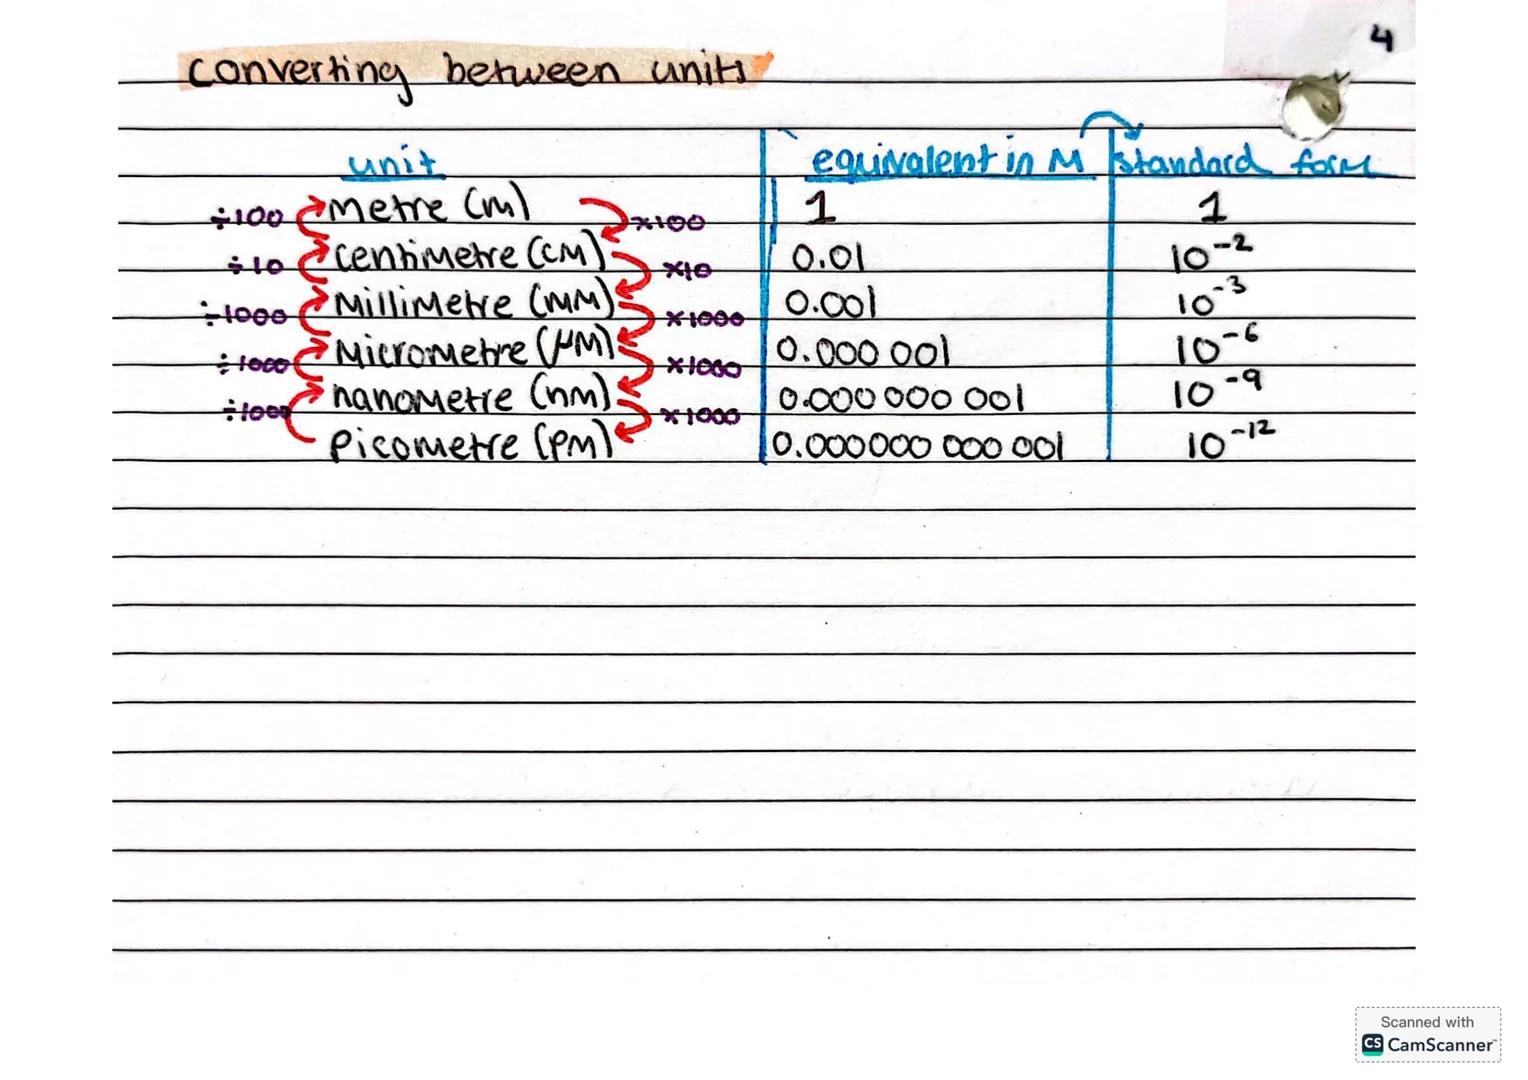 4
converting between units
unit equivalent in M standard form
÷100 metre (m) ×100 1 1
÷10 centimetre (cm) ×10 0.01 10⁻²
÷1000 millimetre (mm) ×1000 0.001 10⁻³
÷1000 micrometre (μm) ×1000 0.000 001 10⁻⁶
÷1000 nanometre (nm) ×1000 0.000 000 001 10⁻⁹
picometre (pm) 0.000000 000 001 10⁻¹²
Scanned with
CS CamScanner